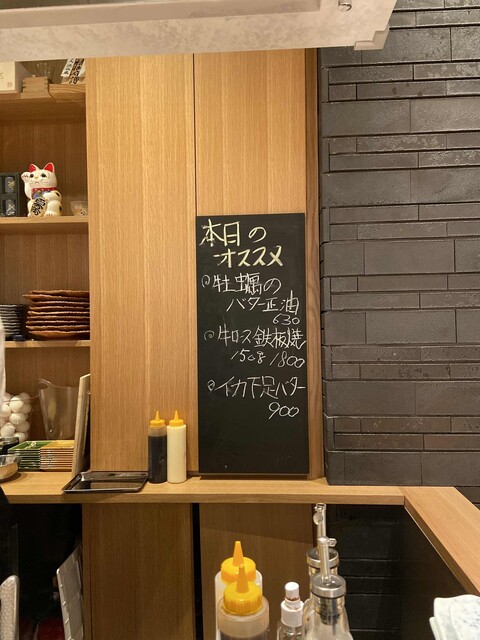 本日の
オススメ
◎牡蠣の
バター正油
630
◎牛ロース鉄板焼
150g 1800
◎イカ下足バター
900